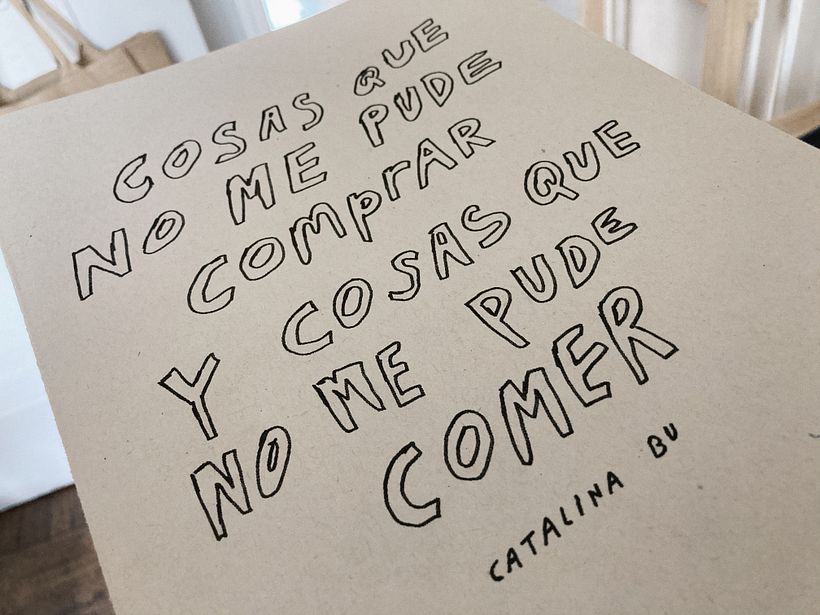 COSAS QUE
NO ME PUDE
COMprAR
Y COSAS QUE
NO ME PUDE
COMER
CATALINA BU